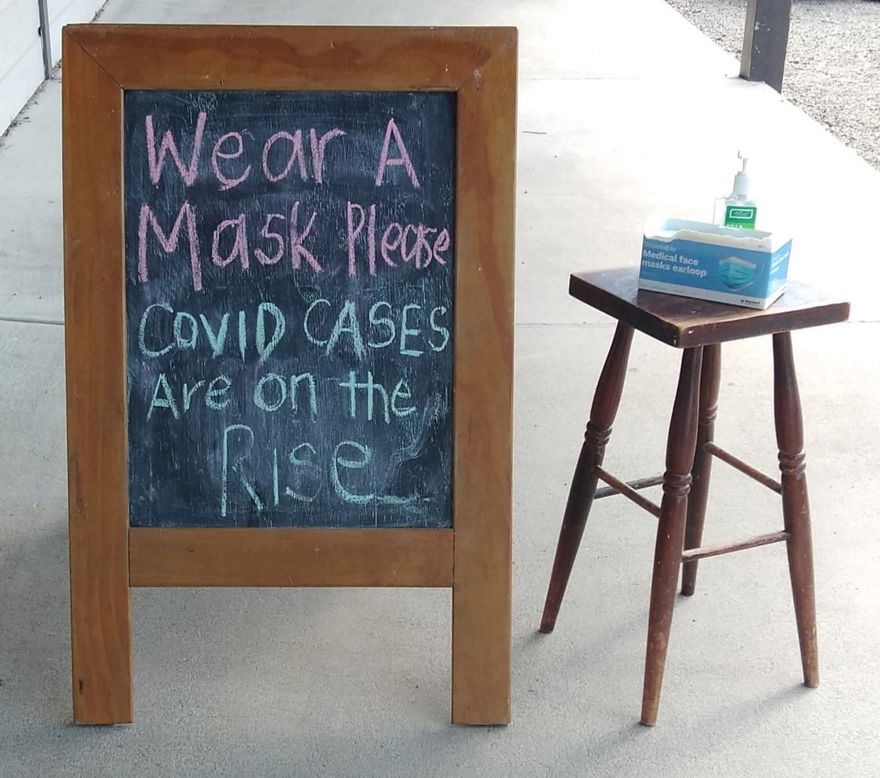 Wear A
Mask Please
COVID CASES
Are on the
Rise
Medical face
masks earloop